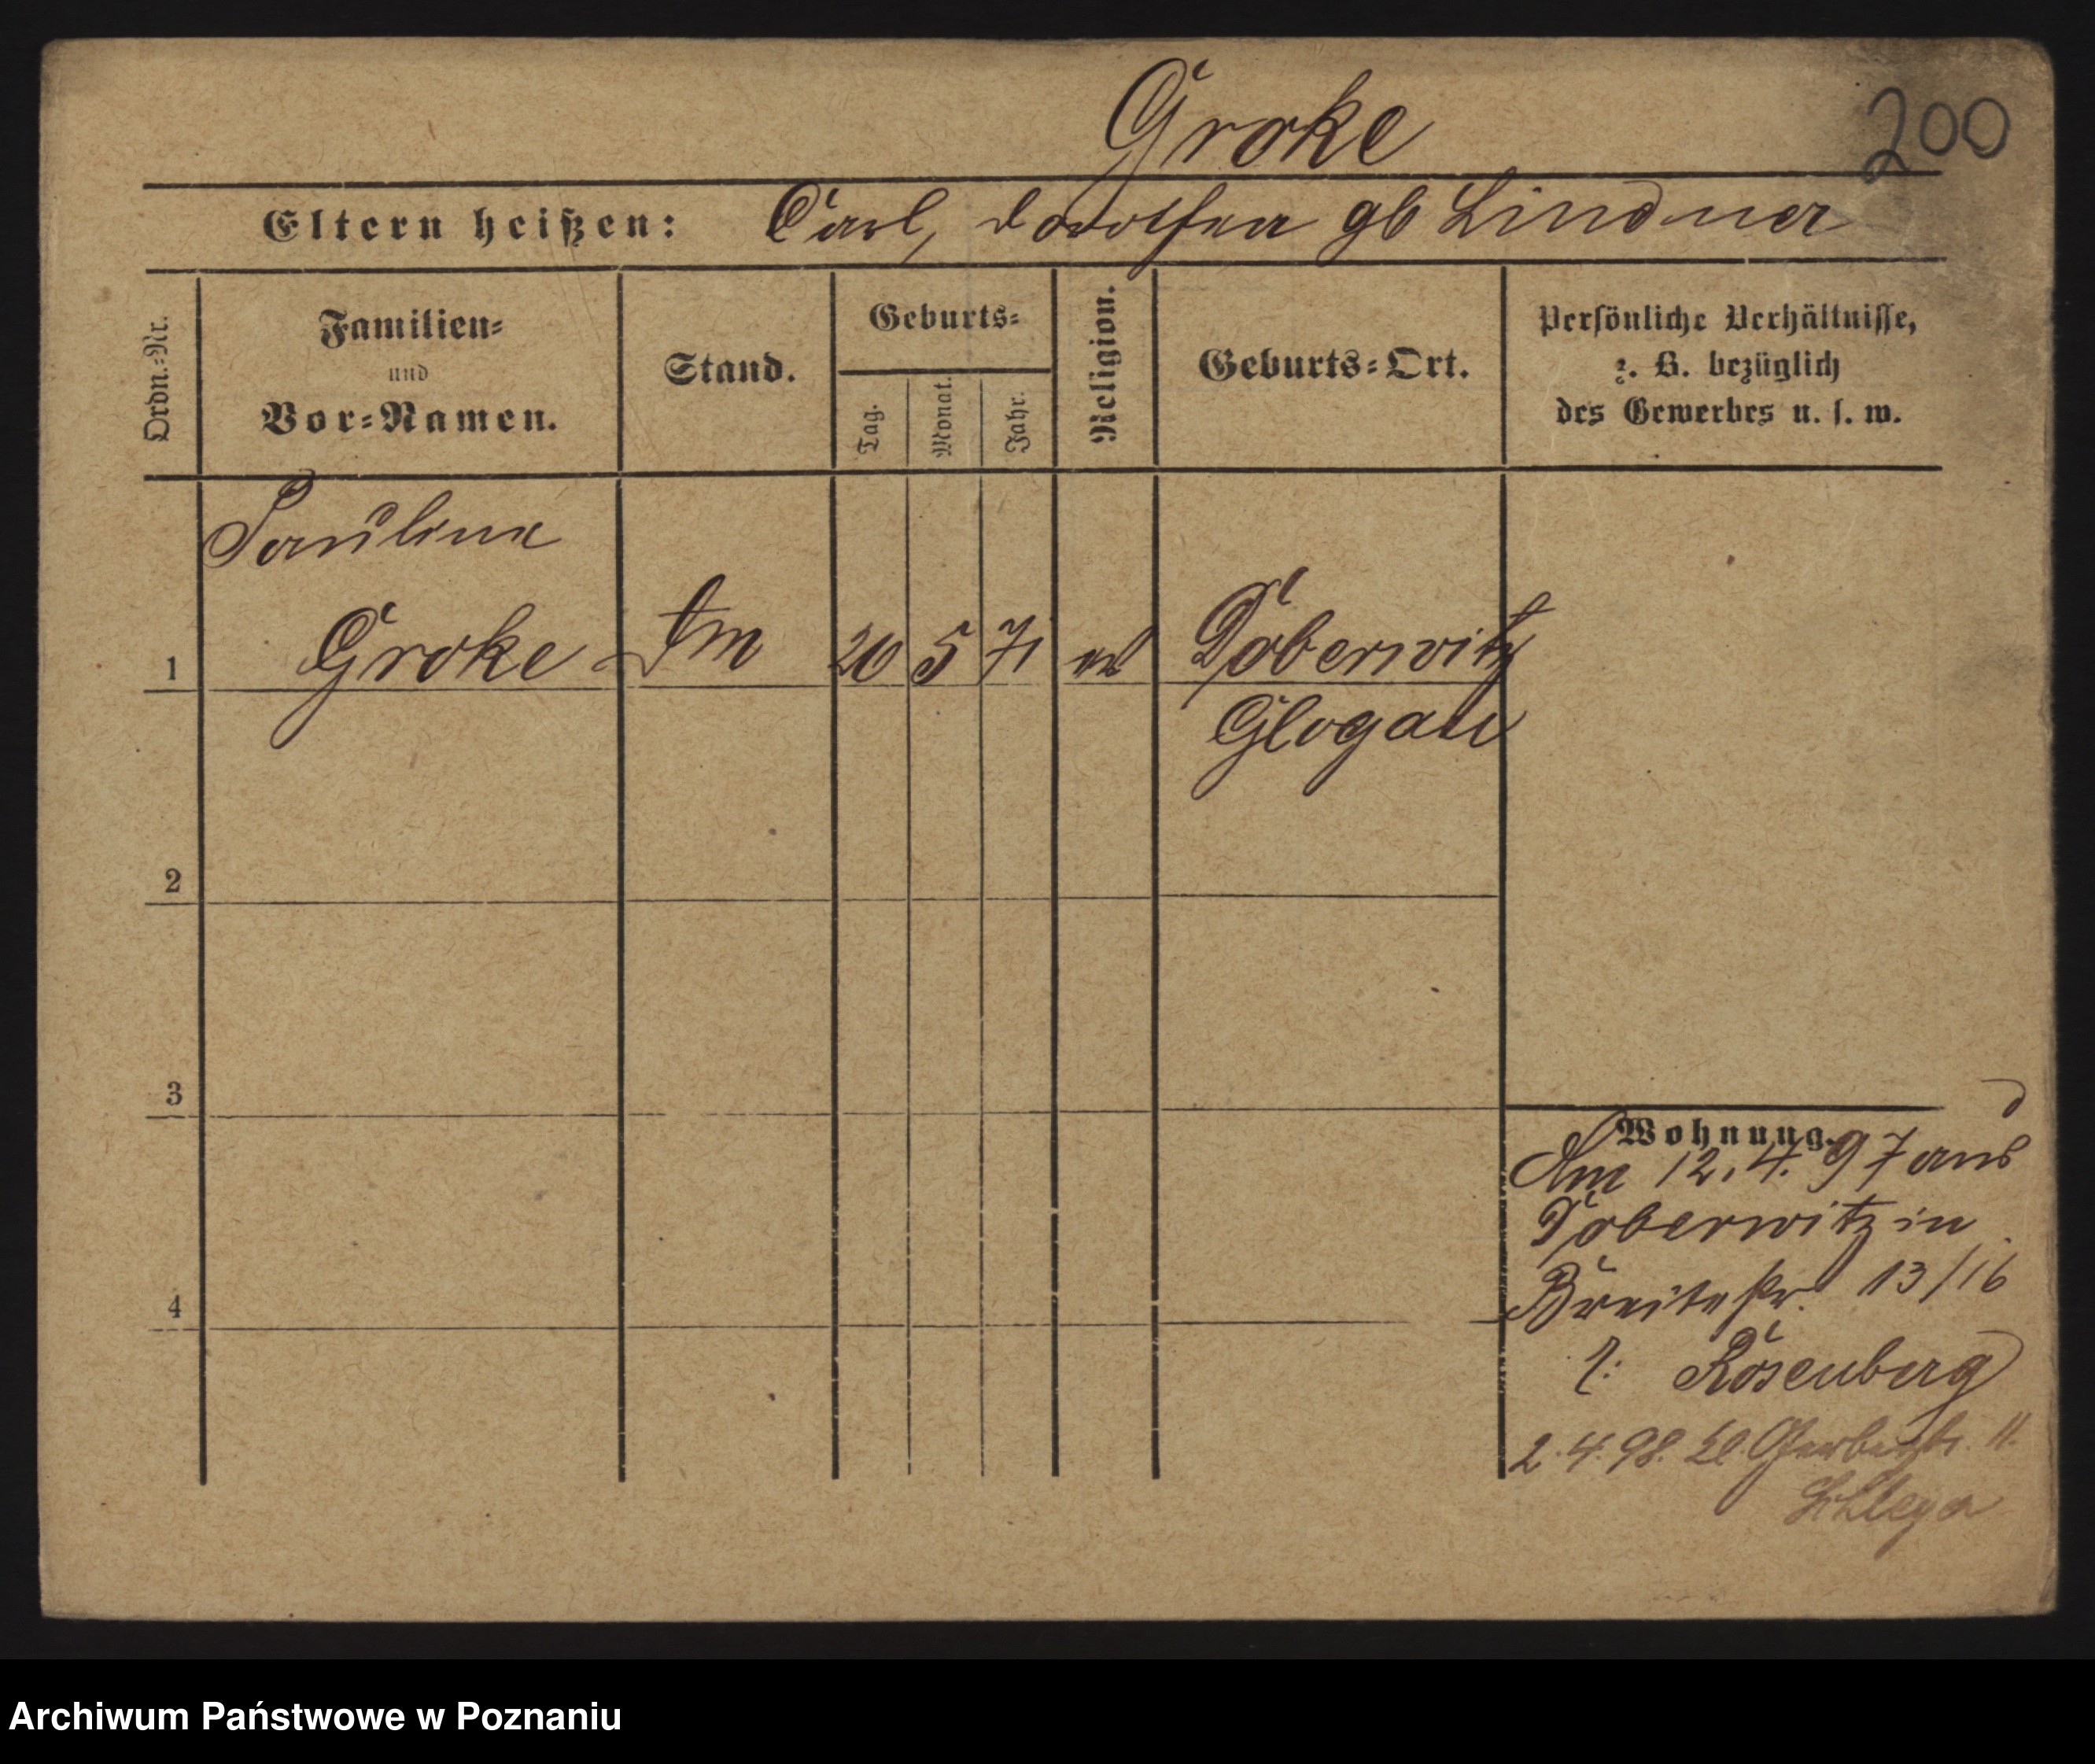 Groke
200
Eltern heißen: Carl, Dorothea gb Lindner
Ordn.-Nr.
Familien-
und
Vor-Namen.
Stand.
Geburts-
Tag.
Monat.
Jahr.
Religion.
Geburts-Ort.
Persönliche Verhältnisse,
z. B. bezüglich
des Gewerbes u. s. w.
Paulina
1 Groke 20 5 71 Doberwitz
Glogau
2
3
4
Wohnung.
Am 12.4.97 aus
Doberwitz in
Breitestr. 13/16
Rosenberg
2.4.98. Gerberstr. 11.
Archiwum Państwowe w Poznaniu